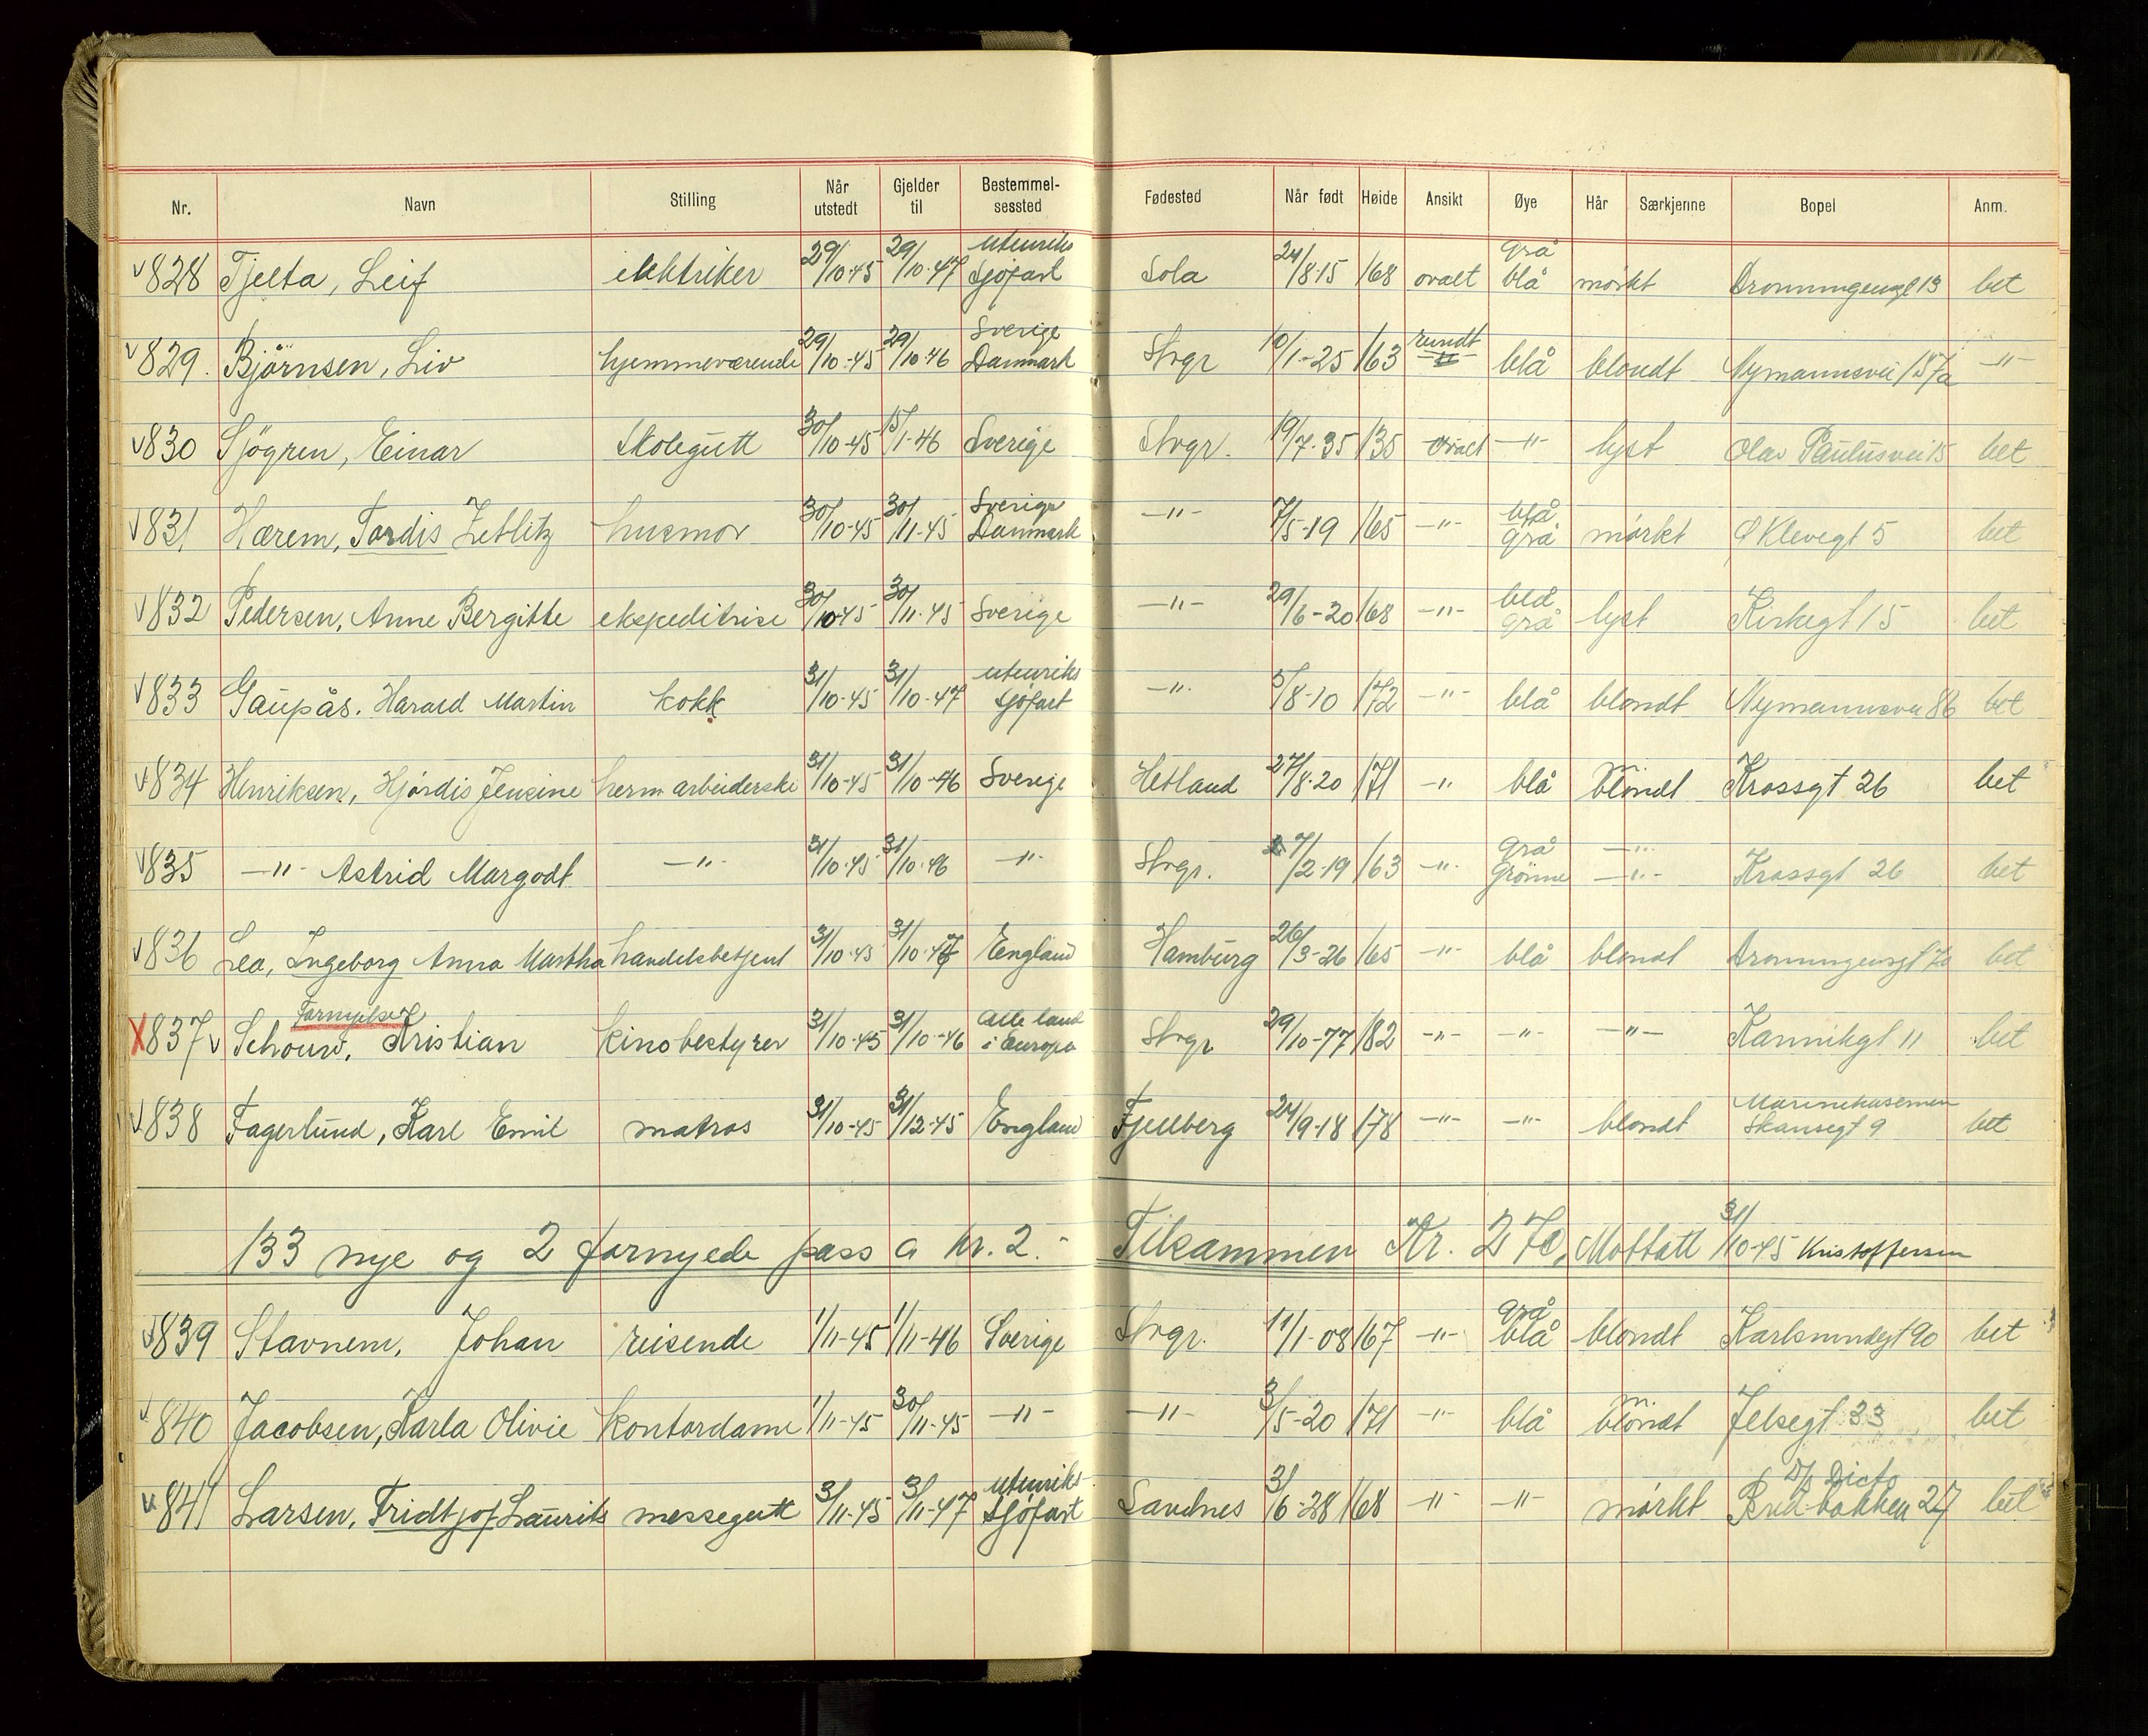 Nr. Navn Stilling Når utstedt Gjelder til Bestemmelsessted Fødested Når født Høide Ansikt Øye Hår Særkjenne Bopel Anm.
828 Tjelta, Leif elektriker 29/10-45 29/10-47 utenriks sjöfart Sola 24/8-15 168 ovalt grå blå mörkt Dronningensgt 13 bet
829. Björnsen, Liv hjemmeværende 29/10-45 29/10-46 Sverige Danmark Stvgr 10/1-25 163 rundt blå blondt Nymannsvei 157a -"-
830 Sjögren, Einar Skolegutt 30/10-45 15/1-46 Sverige Stvgr. 19/7-35 135 ovalt -"- lyst Olav Paulusvei 15 bet
831 Hærem, Tordis Zetlitz husmor 30/10-45 30/11-45 Sverige Danmark -"- 7/5-19 165 -"- blå grå mörkt Ø Klevegt 5 bet
832 Pedersen, Anne Bergitte ekspeditrise 30/10-45 30/11-45 Sverige -"- 29/6-20 168 -"- blå grå lyst Kirkegt 15 bet
833 Gaupås. Harald Martin kokk 31/10-45 31/10-47 utenriks sjöfart -"- 5/8-10 172 -"- blå blondt Nymannsvei 86 bet
834 Henriksen, Hjördis Jensine herm arbeiderske 31/10-45 31/10-46 Sverige Hetland 27/8-20 171 -"- blå m. blondt Krossgt 26 bet
835 -"- Astrid Margodt -"- 31/10-45 31/10-46 -"- Stvgr. 7/2-19 163 -"- grå grönne -"- -"- Krossgt 26 bet
836 Lea, Ingeborg Anna Martha handelsbetjent 31/10-45 31/10-47 England Hamburg 26/3-26 165 -"- blå blondt Dronningensgt 70 bet
Fornyelse
X837 Schouw, Kristian kinobestyrer 31/10-45 31/10-46 alle land i Europa Stvgr 29/10-77 182 -"- -"- -"- Kannikgt 11 bet
838 Fagerlund, Karl Emil matros 31/10-45 31/12-45 England Fjelberg 24/9-18 178 -"- -"- blondt Marinekasernen Skansegt 9 bet
133 nye og 2 fornyede pass a kr. 2.- Tilsammen Kr. 270, Mottatt 31/10-45 Kristoffersen
839 Stavnem, Johan reisende 1/11-45 1/11-46 Sverige Stvgr. 11/1-08 167 -"- grå blå blondt Karlsmindegt 90 bet
840 Jacobsen, Karla Olivie kontordame 1/11-45 30/11-45 -"- -"- 3/5-20 171 -"- blå m. blondt Jelsegt 33 bet
841 Larsen, Fridtjof Laurits messegutt 3/11-45 3/11-47 utenriks sjöfart Sandnes 3/6-28 168 -"- -"- mörkt D/S Dicto bakken 27 bet